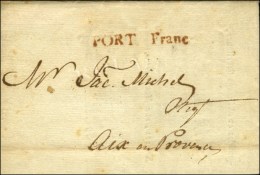 PORT Franc
Mr Jac. Michel
Aix en Provence